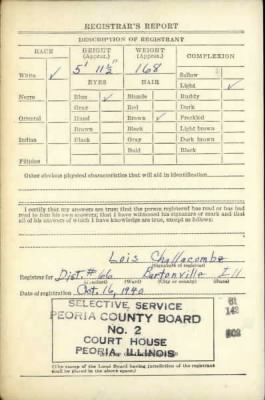 REGISTRAR'S REPORT
DESCRIPTION OF REGISTRANT
RACE HEIGHT (Approx.) WEIGHT (Approx.) COMPLEXION
White ✓ 5' 11½" 168 Sallow
Light ✓
EYES HAIR Ruddy
Negro Blue ✓ Blonde Dark
Gray Red Freckled
Oriental Hazel Brown ✓ Light brown
Brown Black Dark brown
Indian Black Gray Black
Bald
Filipino
Other obvious physical characteristics that will aid in identification
I certify that my answers are true; that the person registered has read or has had
read to him his own answers; that I have witnessed his signature or mark and that
all of his answers of which I have knowledge are true, except as follows:
Lois Challacombe
(Signature of registrar)
Registrar for Dist. #66 Bartonville Ill
(Ward) (City or county) (State)
Date of registration Oct. 16, 1940
SELECTIVE SERVICE
PEORIA COUNTY BOARD
No. 2
COURT HOUSE
PEORIA, ILLINOIS
(The stamp of the Local Board having jurisdiction of the registrant
shall be placed in the above space.)